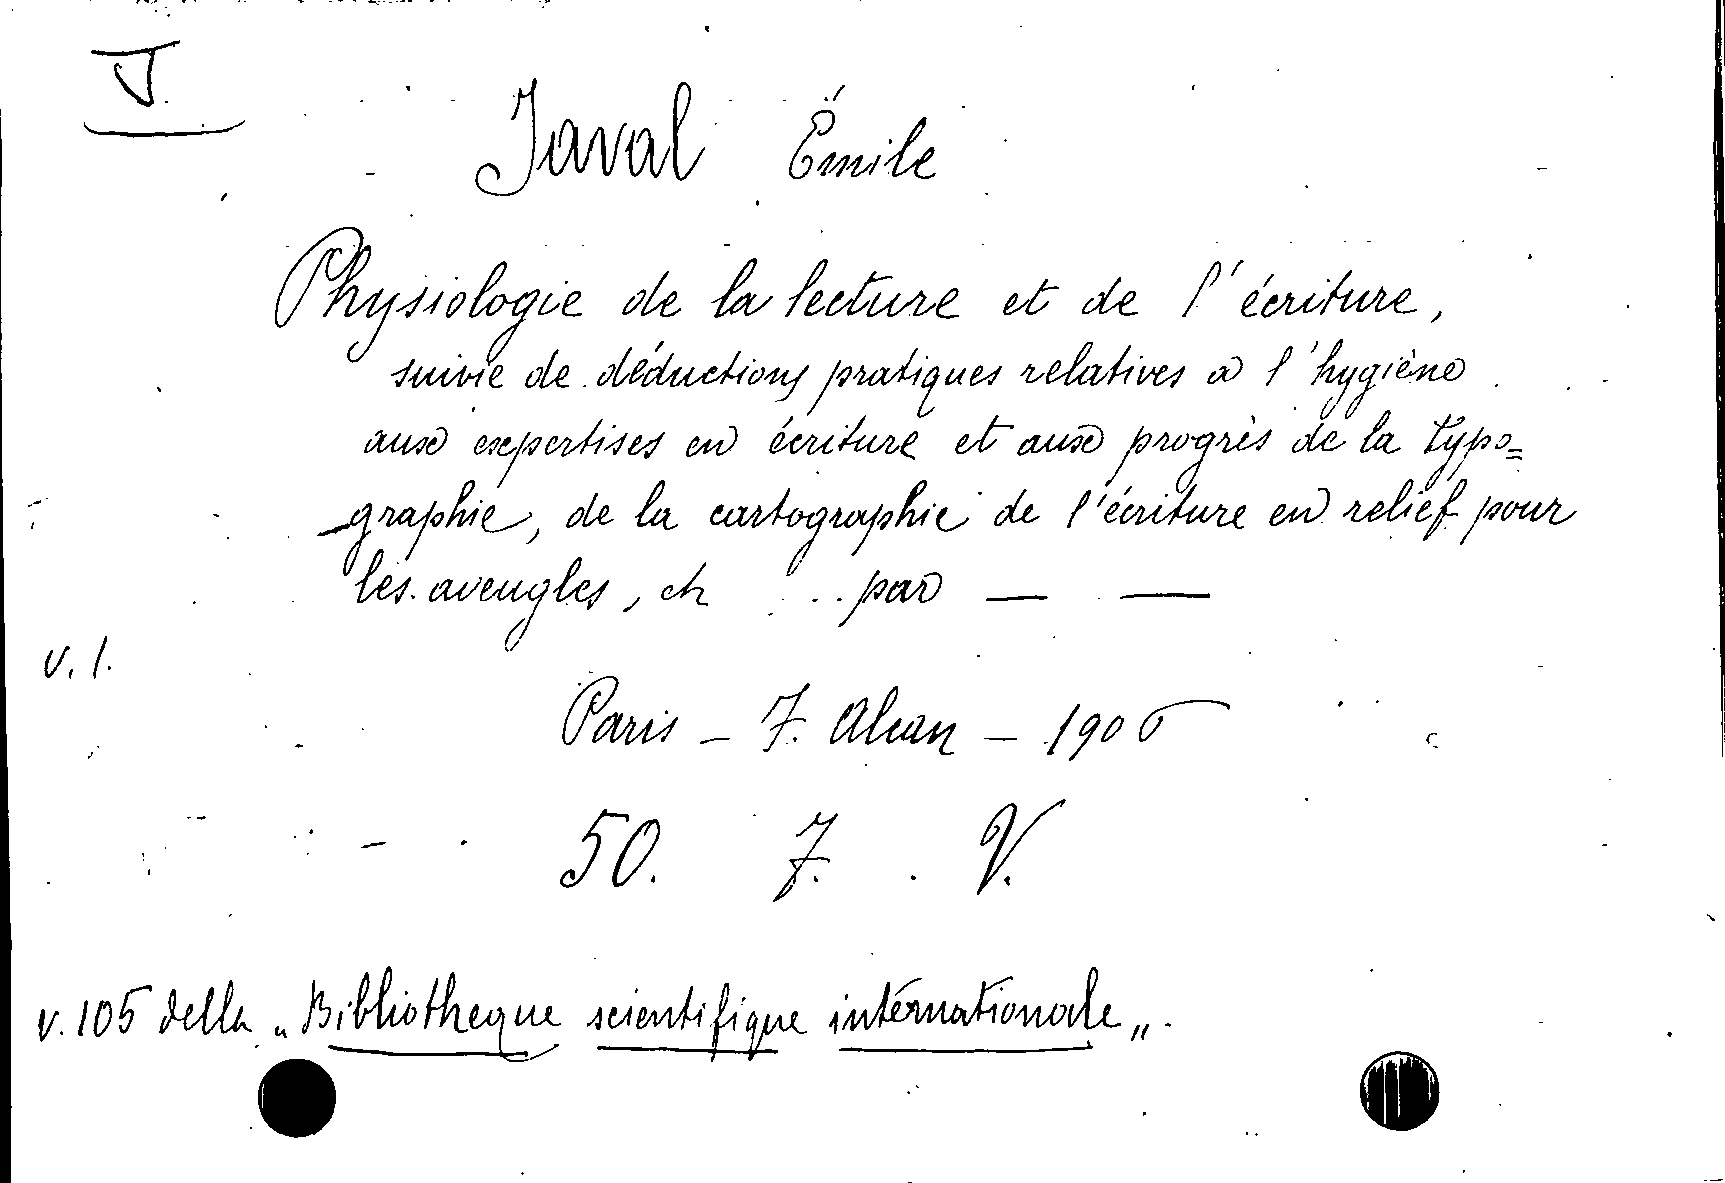 J
Javal Émile
Physiologie de la lecture et de l'écriture,
suivie de déductions pratiques relatives a l'hygiène
aux expertises en écriture et aux progrès de la typo=
graphie, de la cartographie de l'écriture en relief pour
les aveugles, etc par — —
v. 1.
Paris - F. Alcan - 1906
50. F. V.
v. 105 della „Bibliotheque scientifique internationale„.